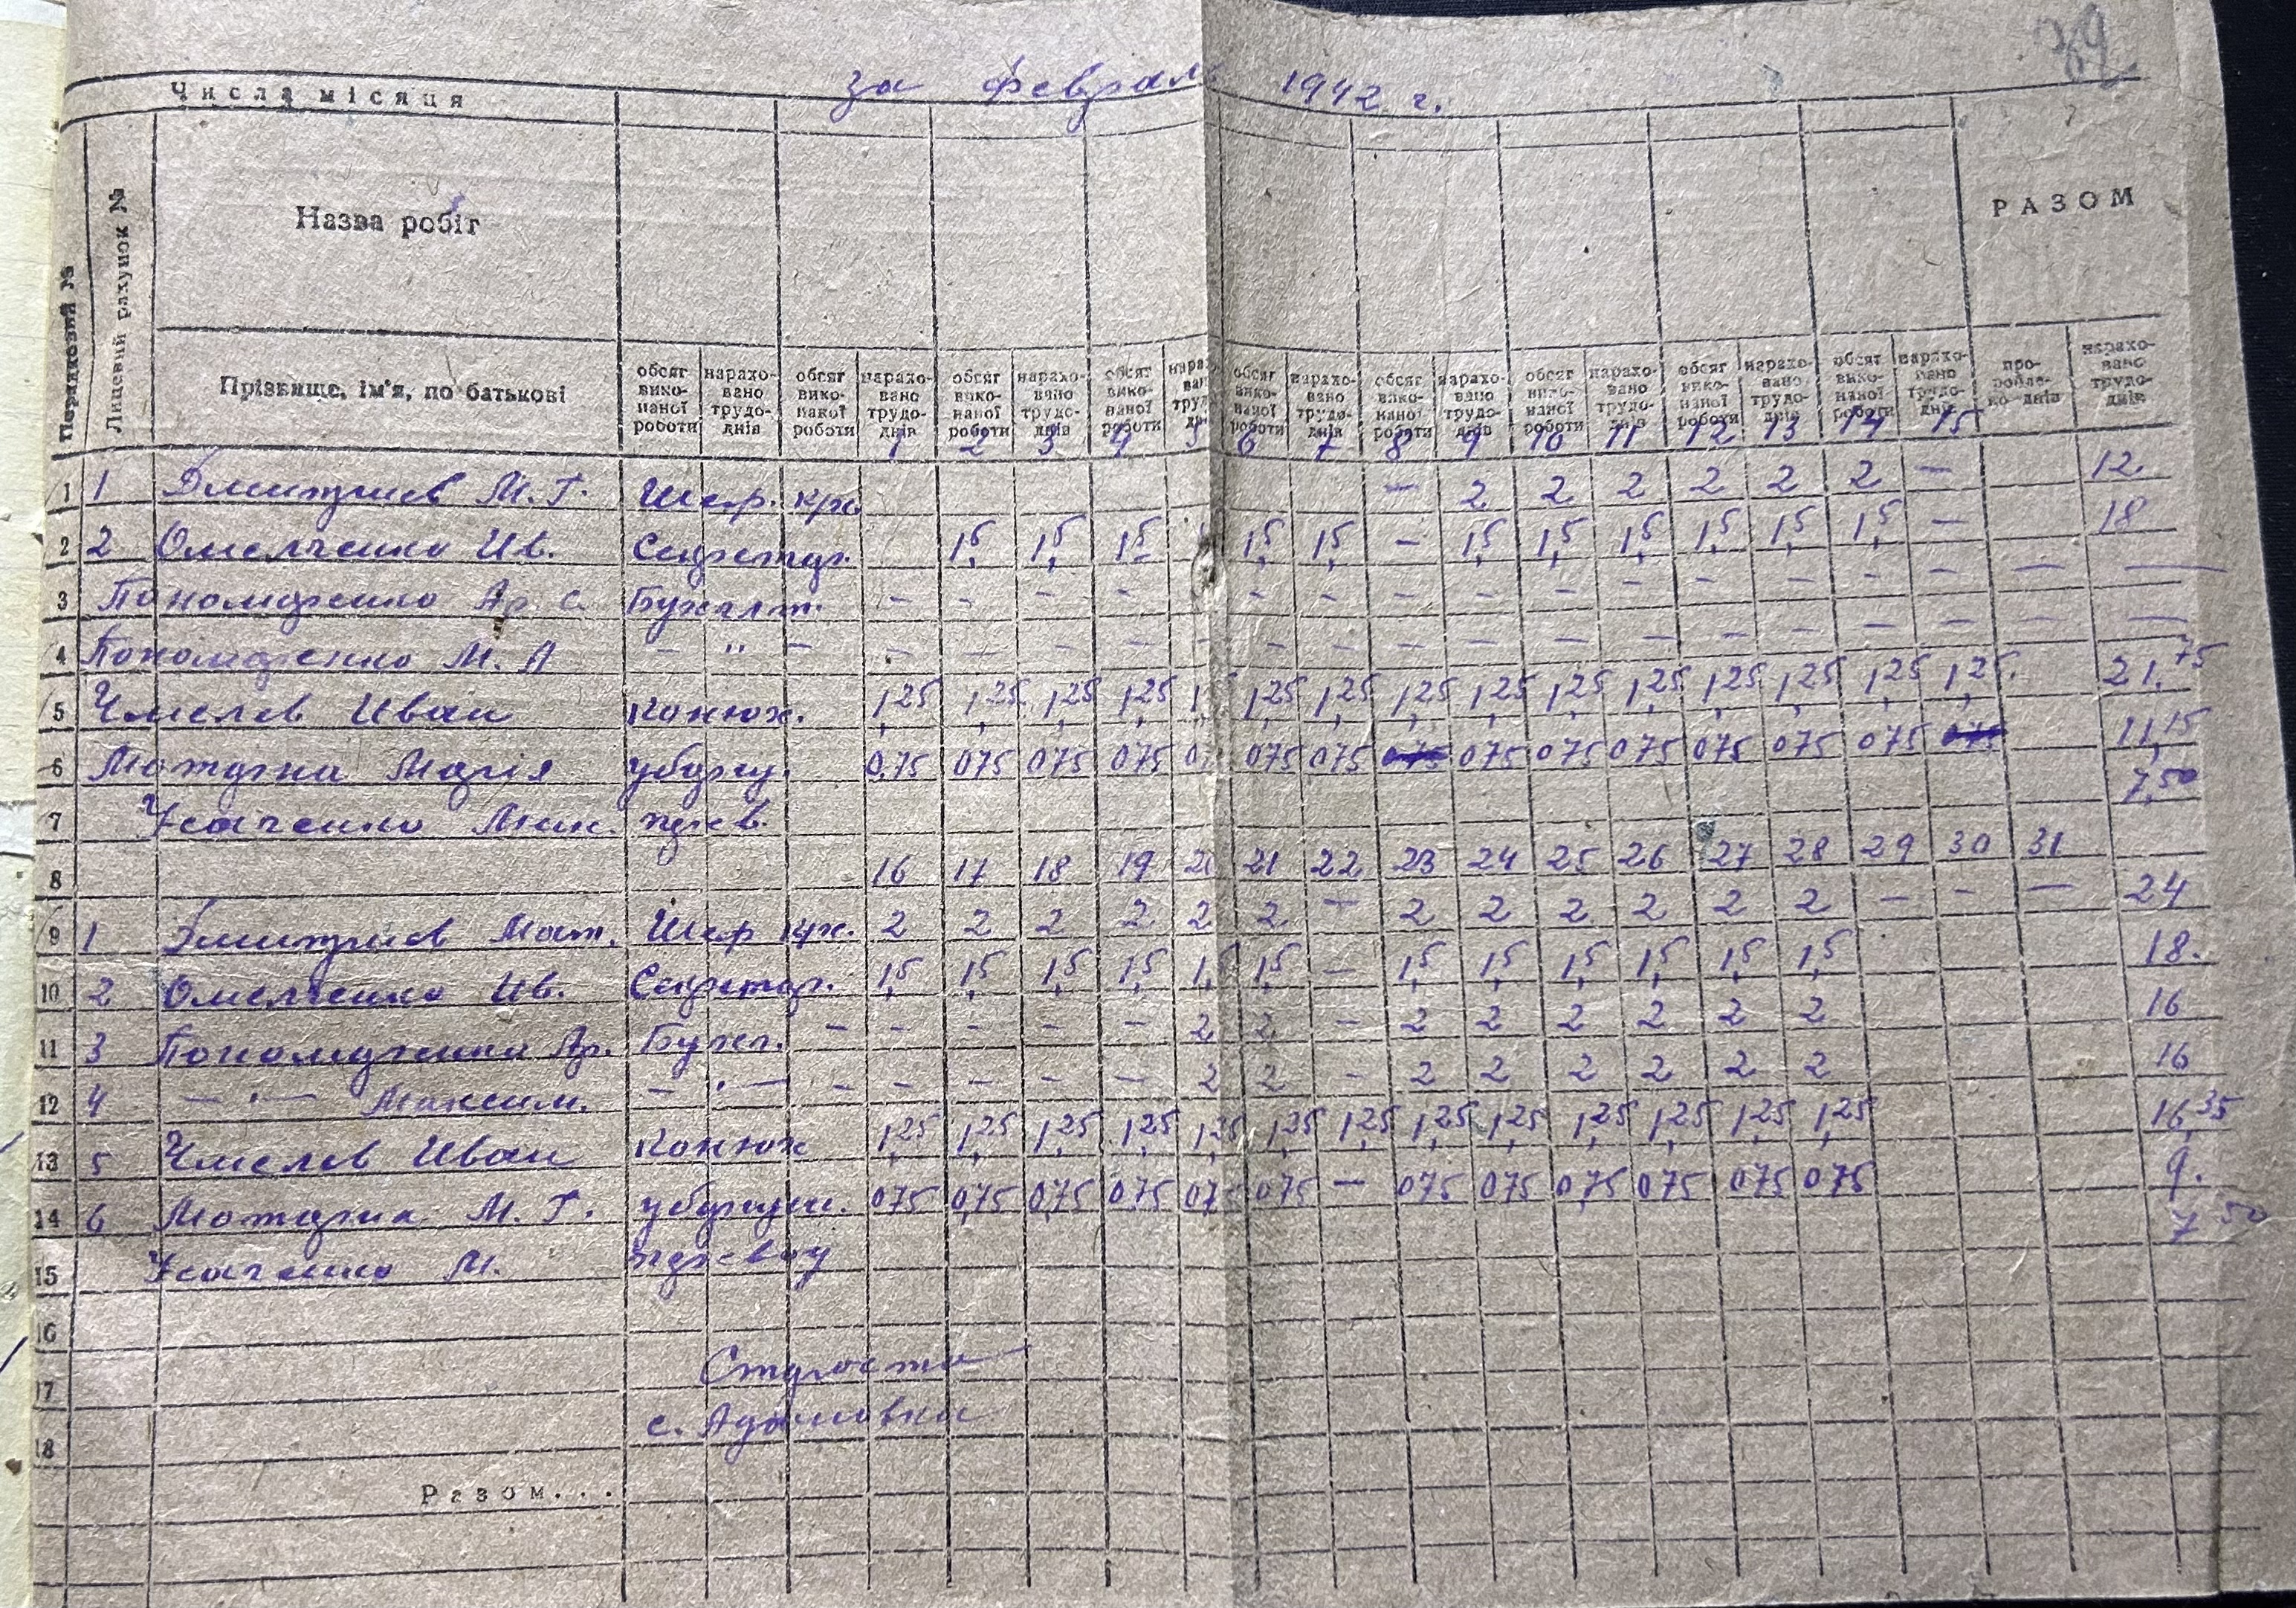 за феврал 1942 г.
Числа місяця
Порядковий №
Лицевий рахунок №
Назва робіт
РАЗОМ
Прізвище, ім'я, по батькові
обсяг виконаної роботи нараховано трудоднів обсяг виконаної роботи нараховано трудоднів обсяг виконаної роботи нараховано трудоднів обсяг виконаної роботи обсяг виконаної роботи нараховано трудоднів обсяг виконаної роботи нараховано трудоднів обсяг виконаної роботи нараховано трудоднів обсяг виконаної роботи нараховано трудоднів обсяг виконаної роботи нараховано трудоднів пророблено днів нараховано трудоднів
1 2 3 4 5 6 7 8 9 10 11 12 13 14 15
1 1 Дмитриев М. Г. — 2 2 2 2 2 2 — 12
2 2 Омельченко Ив. Секретар. 1,5 1,5 1,5 1,5 1,5 — 1,5 1,5 1,5 1,5 1,5 1,5 — 18
3 Пономаренко Ар. С. Бухалт. - - - - - - - - - - - - - - — —
4 Пономаренко М. А — " — - - - - - - - - - - - - - - - — —
5 Чмелев Иван Конюх. 1,25 1,25 1,25 1,25 1, 1,25 1,25 1,25 1,25 1,25 1,25 1,25 1,25 1,25 1,25. 21,75
6 Мотарна Марія уборщ. 0,75 075 075 075 07 075 075 075 075 075 075 075 075 075 075 11,15
7 Усаченко Мих. 7,50
8 16 17 18 19 20 21 22 23 24 25 26 27 28 29 30 31
9 1 Дмитриев Мат. 2 2 2 2 2 2 — 2 2 2 2 2 2 — - — 24
10 2 Омельченко Ив. Секретар. 1,5 1,5 1,5 1,5 1,5 1,5 — 1,5 1,5 1,5 1,5 1,5 1,5 18.
11 3 Пономаренко Ар. Бухг. - - - - — 2 2 — 2 2 2 2 2 2 16
12 4 — " — Максим. — " — - - - - — 2 2 - 2 2 2 2 2 2 16
13 5 Чмелев Иван Конюх 1,25 1,25 1,25 1,25 1,25 1,25 1,25 1,25 1,25 1,25 1,25 1,25 1,25 16,35
14 6 Мотарна М. Г. уборщи. 075 0,75 0,75 0,75 07 075 — 075 075 0,75 075 075 075 9.
15 Усаченко М. 7 50
16
17 Староста
18 с. Адамовки
Разом...